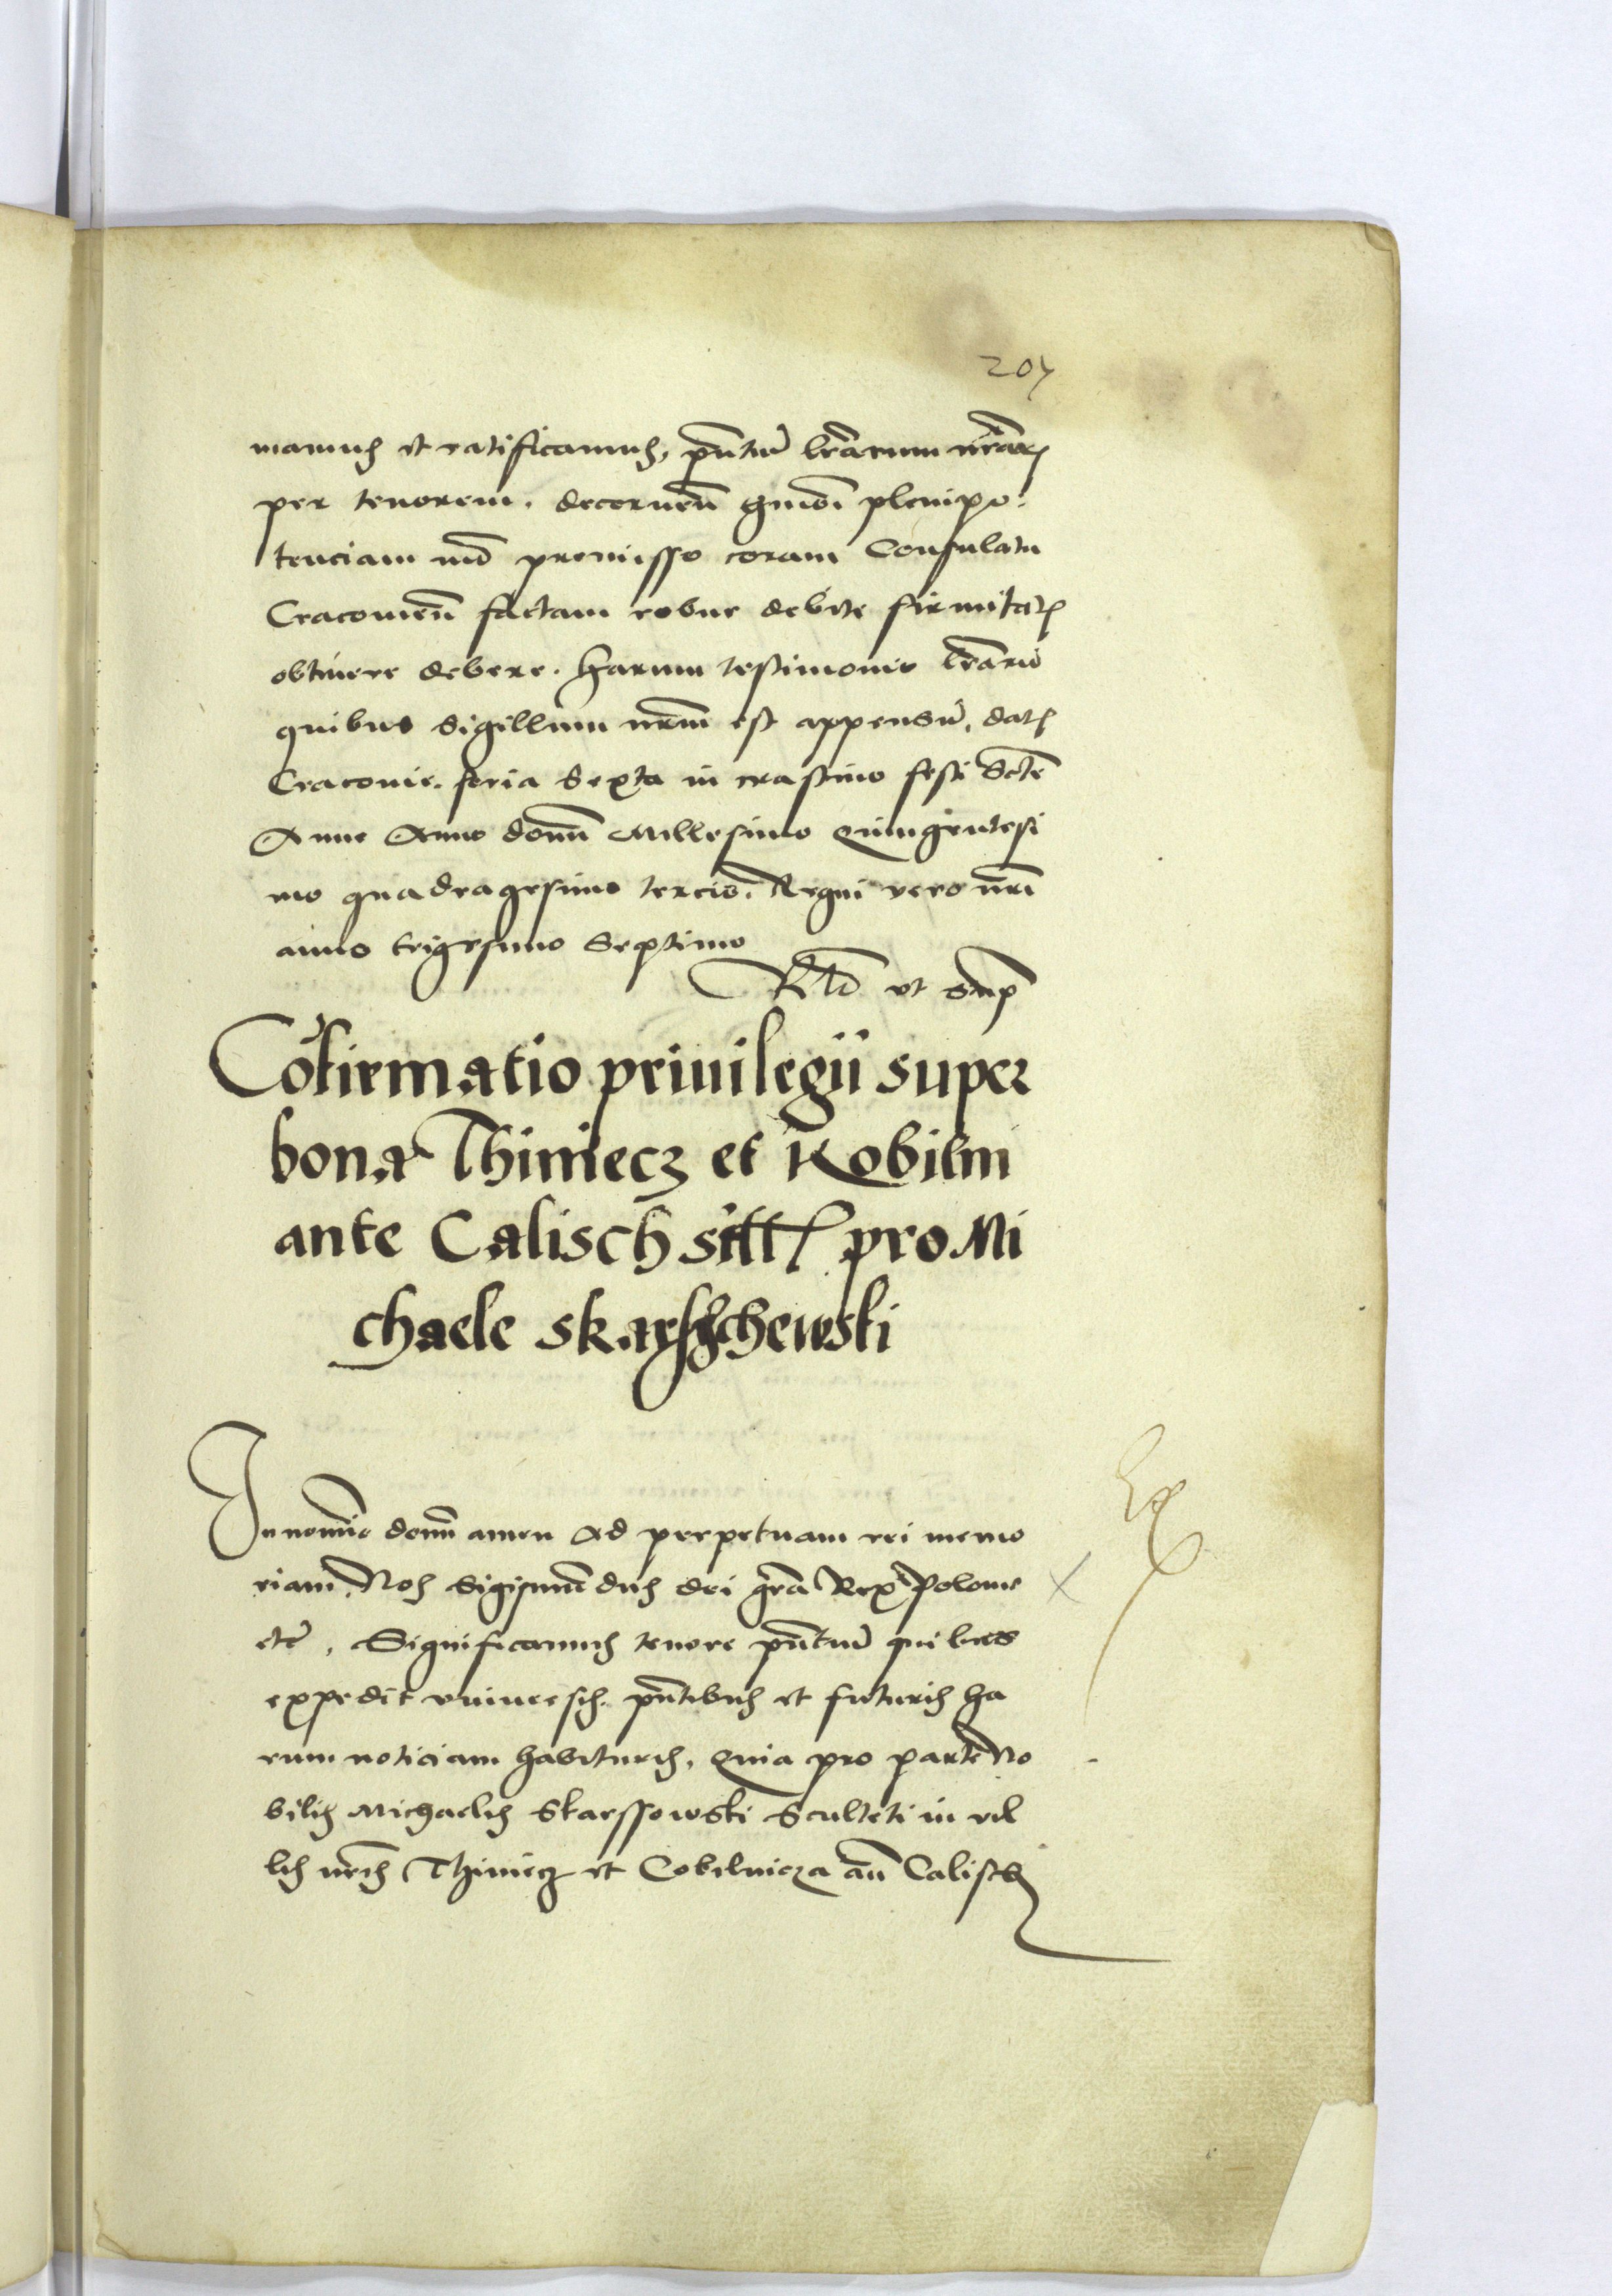 207
mamus et ratificamus, pñtiũ lr̃arum nr̃arũ
per tenorem. decernen̄ hmõi plenipo:
tenciam mõ premisso coram Consulatu
Cracovien̄ factam robur debite firmitatis
obtinere debere. Harum testimonio lr̃arũ
quibus Sigillum nr̃m est appensũ, dat̃
Cracovie. feria Sexta in crastino festi Sctẽ
Anne Anno domĩ Millesimo Quingentesi
mo quadragesimo tercio. Regni vero nr̃i
anno trigesimo Septimo
Rtĩo vt supͣ
Cõfirmatio priuilegii super
bona Thiniecz et Kobilin
ante Calisch sitt̃ pro Mi
chaele Skarschewski
In nomĩe domĩ amen Ad perpetuam rei memo
riam. Nos Sigismũdus dei gr̃a Rex Polonie
etc̃. Significamus tenore pñtiũ quibus
expedit vniuersis. pñtibus et futuris ha
rum noticiam habituris, Quia pro parte No
bilis Michaelis Skarssowski Sculteti in vil
lis nr̃is Thiniecz et Cobilnicza añ Calisch